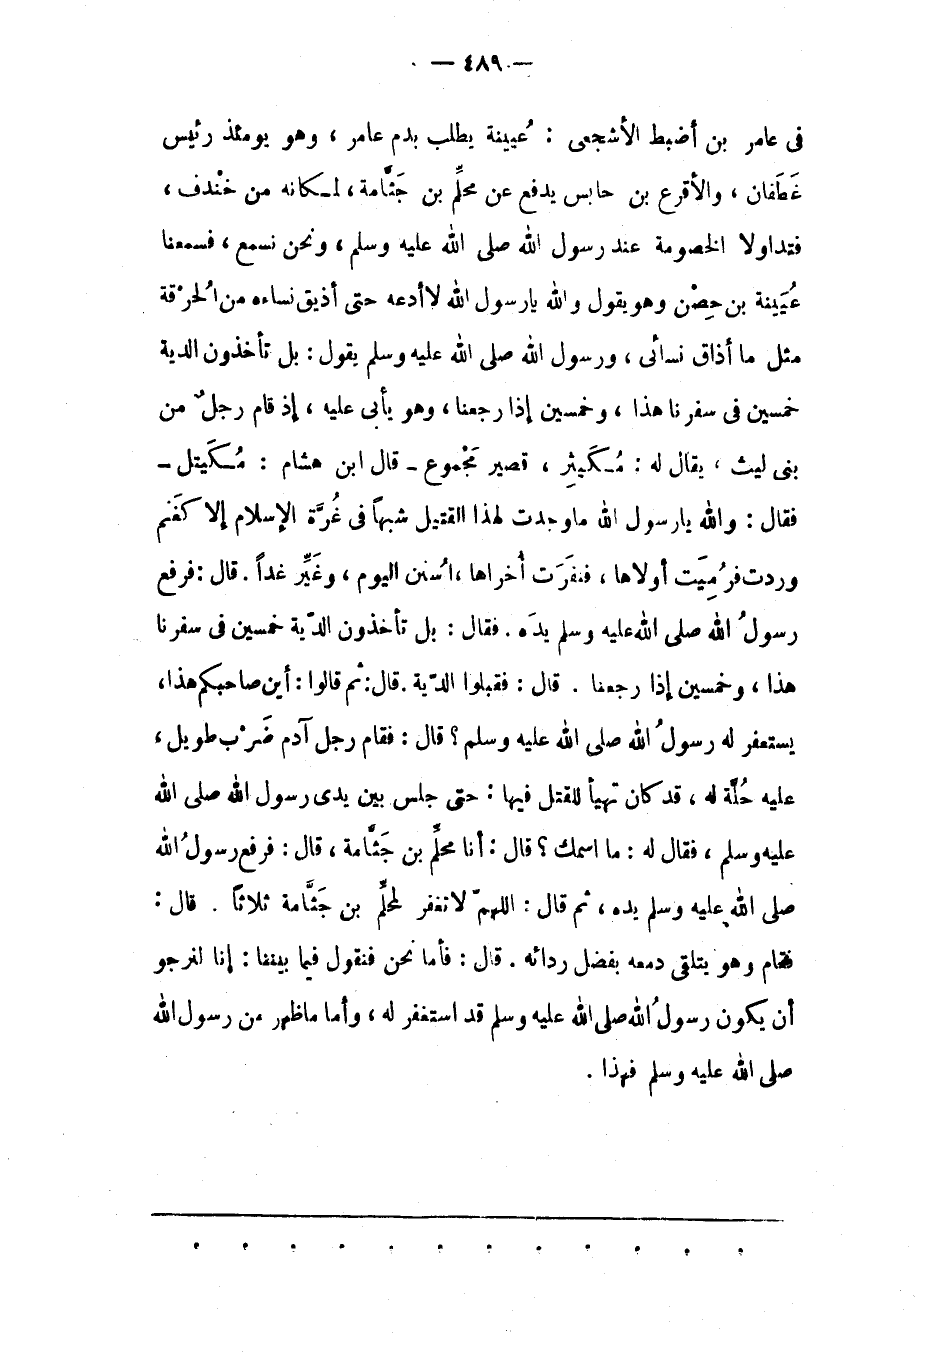 — ٤٨٩ —
فى عامر بن أضبط الأشجعى : عُيينة يطلب بدم عامر ، وهو يومئذ رئيس
غَطَفان ، والأقرع بن حابس يدفع عن محلِّم بن جَثَّامة ، لمـكانه من خنْدف ،
فتداولا الخصومة عند رسول الله صلى الله عليه وسلم ، ونحن نسمع ، فسمعنا
عُيَينة بن حِصْن وهو يقول والله يارسول الله لا أدعه حتى أذيق نساءه من الحُرْقة
مثل ما أذاق نسائى ، ورسول الله صلى الله عليه وسلم يقول : بل تأخذون الدية
خمسين فى سفرنا هذا ، وخمسين إذا رجعنا ، وهو يأبى عليه ، إذ قام رجلٌ من
بنى ليث ، يقال له : مُـكَيثِر ، قصير مَجْموع ـ قال ابن هشام : مُـكَيتل ـ
فقال : والله يارسول الله ماوجدت لهذا القتيل شبهاً فى غُرَّة الإسلام إلا كغَنم
وردت فرُمِيَت أولاها ، فنفَرَت أُخراها ، اسُنن اليوم ، وغَيِّر غداً . قال : فرفع
رسولُ الله صلى الله عليه وسلم يدَه . فقال : بل تأخذون الدّية خمسين فى سفرنا
هذا ، وخمسين إذا رجعنا . قال : فقبلوا الدّية . قال : ثم قالوا : أين صاحبكم هذا ،
يستغفر له رسولُ الله صلى الله عليه وسلم ؟ قال : فقام رجل آدم ضَرْب طويل ،
عليه حُلَّة له ، قد كان تهيأ للقتل فيها : حتى جلس بين يدى رسول الله صلى الله
عليه وسلم ، فقال له : ما اسمك ؟ قال : أنا محلِّم بن جَثَّامة ، قال : فرفع رسولُ الله
صلى الله عليه وسلم يده ، ثم قال : اللهمّ لا تغفر لمحلِّم بن جَثَّامة ثلاثاً . قال :
فقام وهو يتلقى دمعه بفضل ردائه . قال : فأما نحن فنقول فيما بيننا : إنا لنرجو
أن يكون رسولُ الله صلى الله عليه وسلم قد استغفر له ، وأما ماظهر من رسول الله
صلى الله عليه وسلم فهذا .